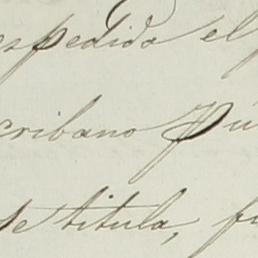 espedido el
cribano Pú
se titula, fu